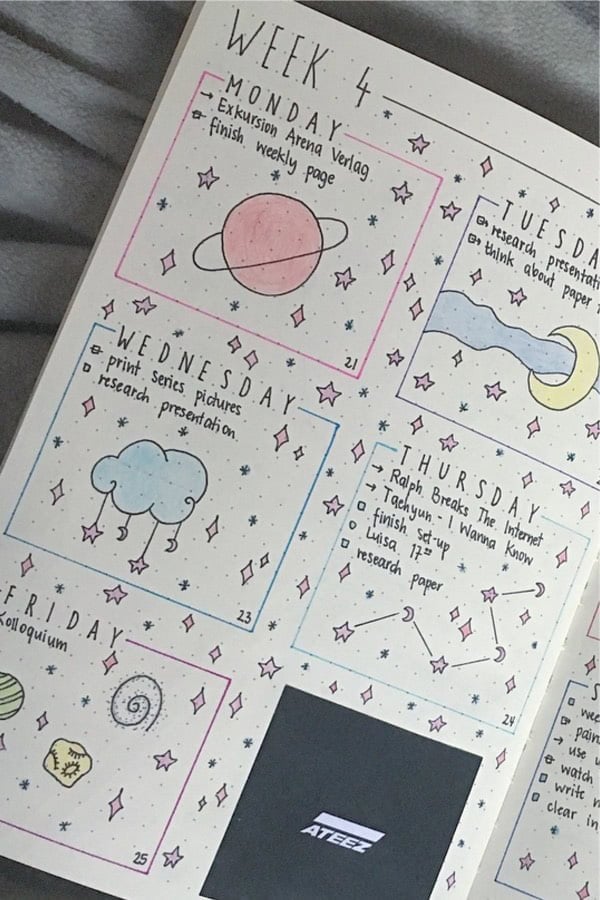 WEEK 4
MONDAY
→ Exkursion Arena Verlag
finish weekly page
21
TUESDA
research presentati
think about paper
WEDNESDAY
print series pictures
research presentation
23
THURSDAY
→ Ralph Breaks The Internet
→ Taehyun - I Wanna Know
finish set-up
Luisa 17
research paper
24
FRIDAY
Kolloquium
25
ATEEZ
S
wee
pain
→ use u
watch
write
clear in